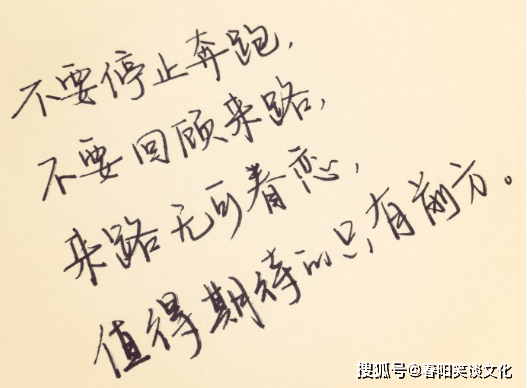 不要停止奔跑,
不要回顾来路,
来路无可眷恋,
值得期待的只有前方。
搜狐号@春阳笑谈文化